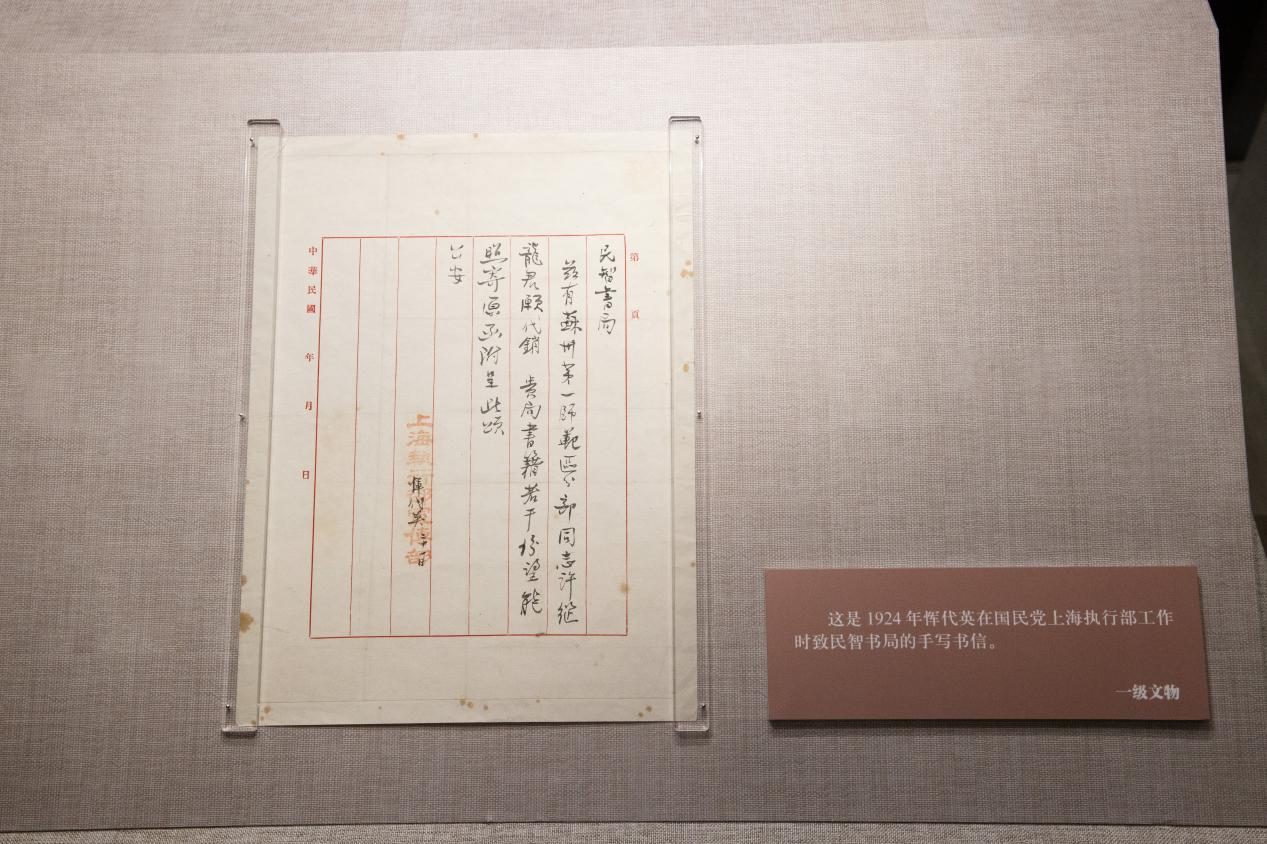 第 頁
民智書局
茲有蘇州第一師範區分部同志許繼
龍君願代銷 貴局書籍若干份望能
照寄原函附呈此頌
公安
上海執行部宣傳部
惲代英
中華民國 年 月 日
这是 1924 年恽代英在国民党上海执行部工作
时致民智书局的手写书信。
一级文物